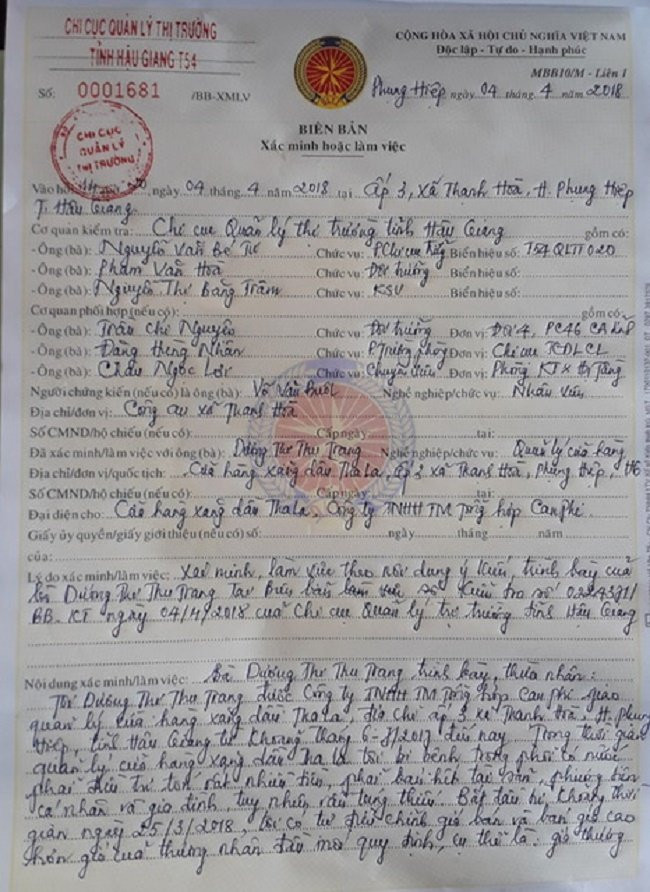 CHI CỤC QUẢN LÝ THỊ TRƯỜNG
TỈNH HẬU GIANG T54
CỘNG HÒA XÃ HỘI CHỦ NGHĨA VIỆT NAM
Độc lập - Tự do - Hạnh phúc
MBB10/M - Liên 1
Số: 0001681 /BB-XMLV
Phụng Hiệp ngày 04 tháng 4 năm 2018
CHI CỤC
QUẢN LÝ
THỊ TRƯỜNG
BIÊN BẢN
Xác minh hoặc làm việc
Vào hồi ngày 04 tháng 4 năm 2018 tại ấp 3, xã Thạnh Hoà, H. Phụng Hiệp
T. Hậu Giang
Cơ quan kiểm tra: Chi cục Quản lý thị trường tỉnh Hậu Giang gồm có:
- Ông (bà): Nguyễn Văn Bé Tư Chức vụ: P.Chi cục trưởng Biển hiệu số: T54 QLTT 020
- Ông (bà): Phạm Văn Hoà Chức vụ: Đội trưởng Biển hiệu số:
- Ông (bà): Nguyễn Thị Băng Trâm Chức vụ: KSV Biển hiệu số:
Cơ quan phối hợp (nếu có): gồm có:
- Ông (bà): Trần Chí Nguyên Chức vụ: Đội trưởng Đơn vị: Đội 4, PC46 CA
- Ông (bà): Đặng Hùng Nhân Chức vụ: P.Trưởng phòng Đơn vị: Chi cục TCDLCL
- Ông (bà): Châu Ngọc Lợi Chức vụ: Chuyên viên Đơn vị: Phòng KT
Người chứng kiến (nếu có) là ông (bà): Võ Văn Buôl Nghề nghiệp/chức vụ: Nhân viên
Địa chỉ/đơn vị: Công an xã Thạnh Hoà
Số CMND/hộ chiếu (nếu có): Cấp ngày tại:
Đã xác minh/làm việc với ông (bà): Dương Thị Thu Trang Nghề nghiệp/chức vụ: Quản lý cửa hàng
Địa chỉ/đơn vị/quốc tịch: Cửa hàng xăng dầu ThaLa, ấp 3 xã Thạnh Hoà, Phụng Hiệp, HG
Số CMND/hộ chiếu (nếu có): Cấp ngày tại:
Đại diện cho: Cửa hàng xăng dầu ThaLa, Công ty TNHH TM Tổng hợp CanPhi.
Giấy ủy quyền/giấy giới thiệu (nếu có) số: ngày tháng năm
của:
Lý do xác minh/làm việc: Xác minh, làm việc theo nội dung ý kiến, trình bày của
bà Dương Thị Thu Trang tại Biên bản kiểm tra số 0224381/
BB-KT ngày 04/4/2018 của Chi cục Quản lý thị trường tỉnh Hậu Giang
Nội dung xác minh/làm việc: Bà Dương Thị Thu Trang trình bày, thừa nhận:
Tôi Dương Thị Thu Trang được Công ty TNHH TM Tổng hợp CanPhi giao
quản lý cửa hàng xăng dầu ThaLa, địa chỉ ấp 3 xã Thạnh Hoà, H. Phụng
Hiệp, tỉnh Hậu Giang từ khoảng tháng 6-7/2017 đến nay. Trong thời gian
quản lý cửa hàng xăng dầu ThaLa tôi bị bệnh trong phổi có nước
phải điều trị tốn rất nhiều tiền, phải bán hết tài sản, phương tiện
cá nhân và gia đình, tuy nhiên vẫn túng thiếu. Bắt đầu từ khoảng thời
gian ngày 25/3/2018, tôi có tự điều chỉnh giá bán và bán giá cao
hơn giá của thương nhân đầu mối quy định, cụ thể là: giá thương